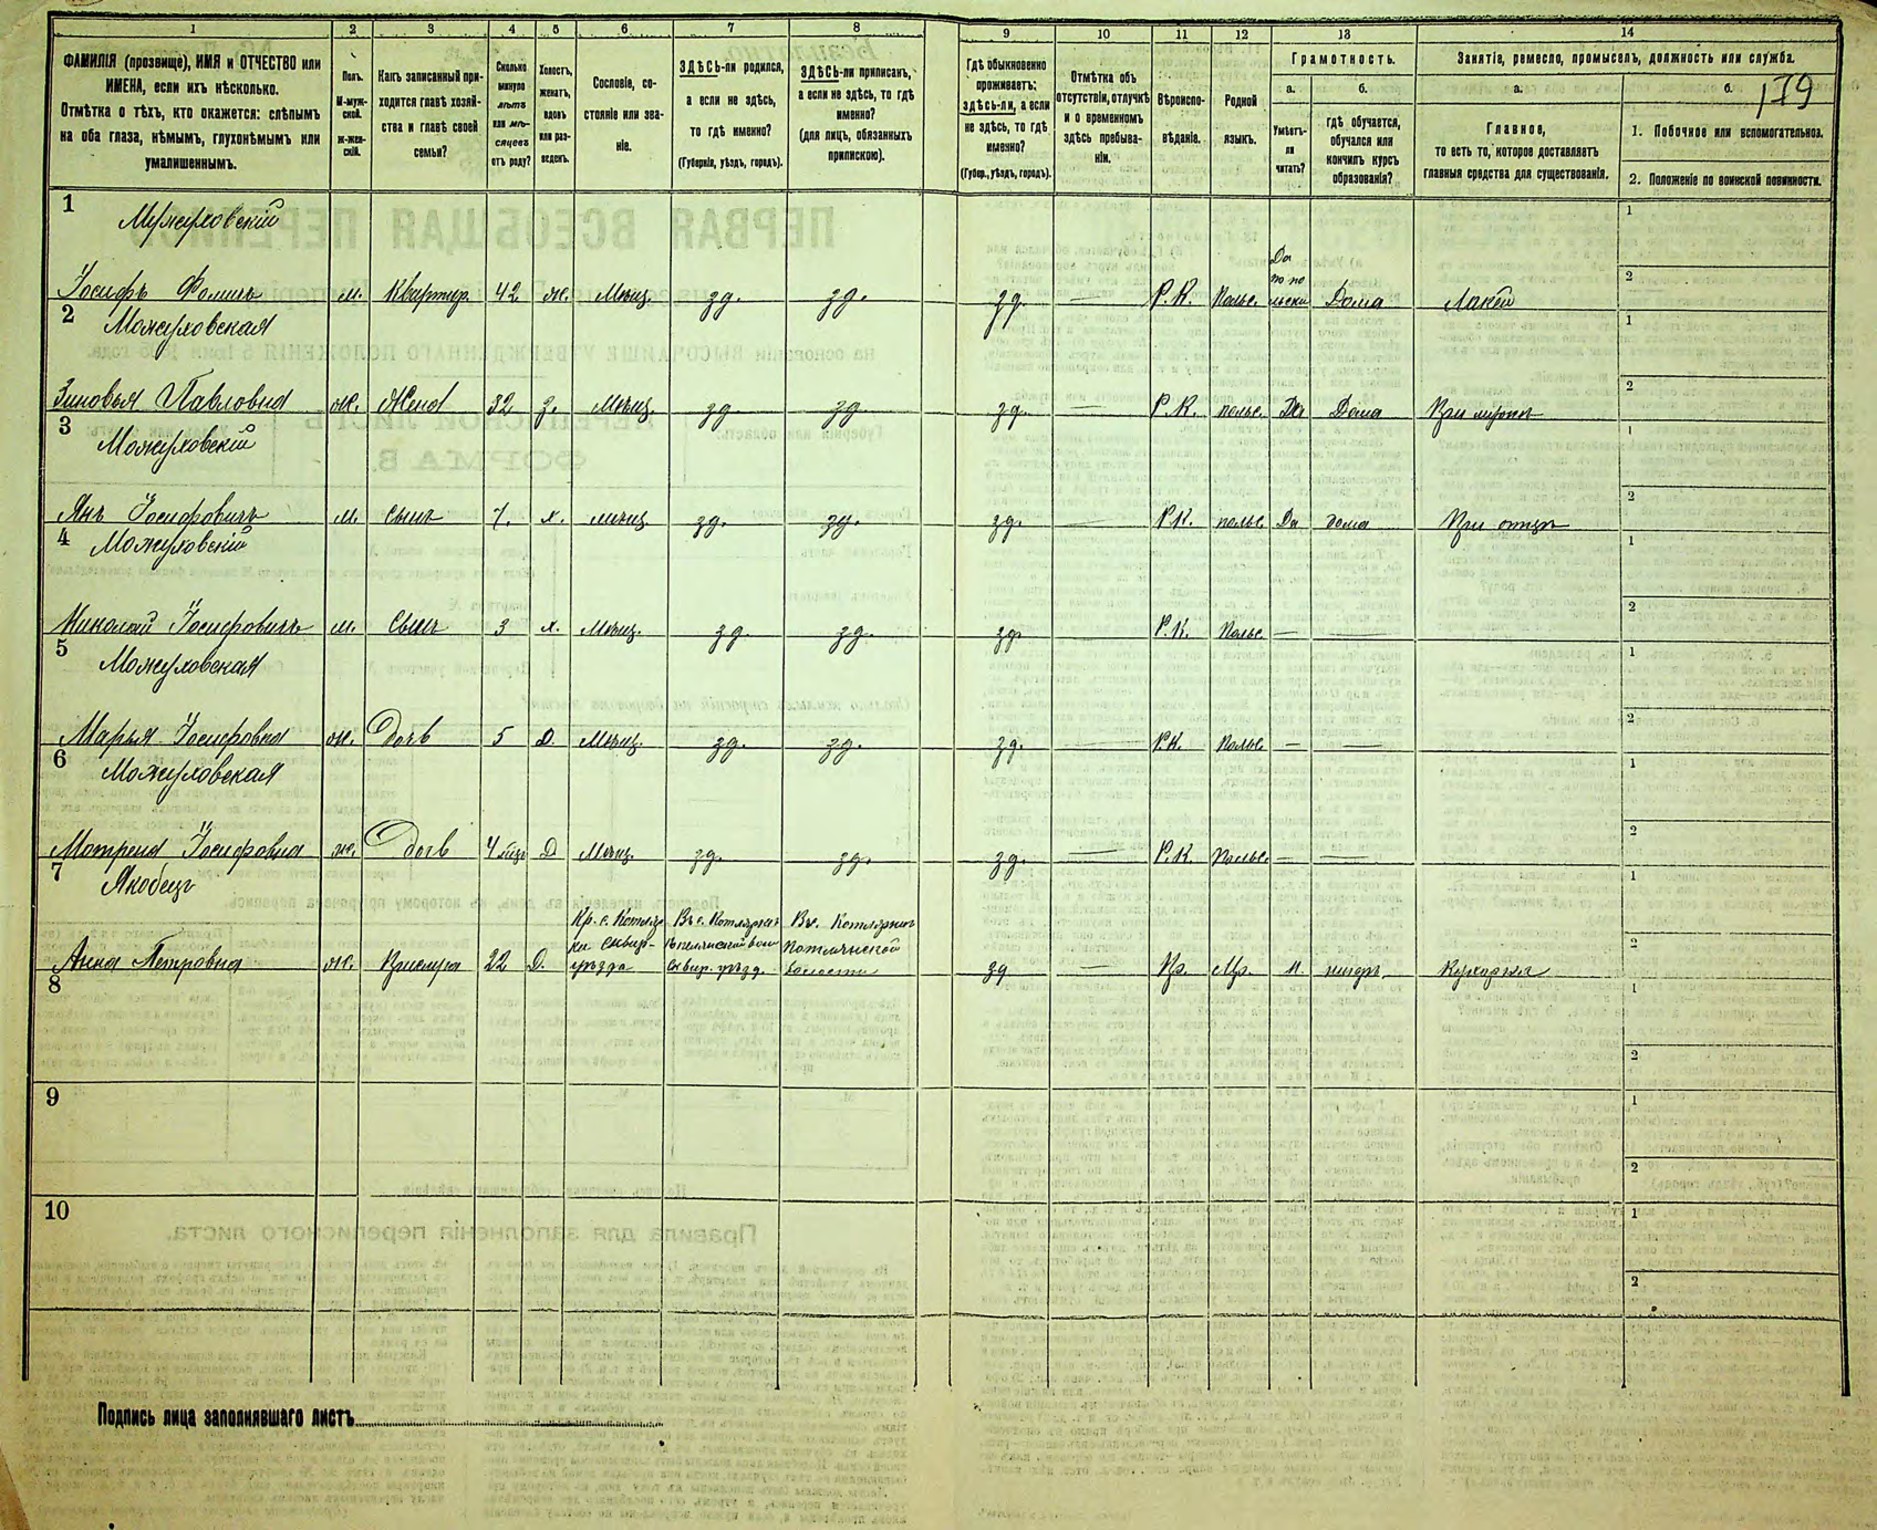 179
1 2 3 4 5 6 7 8 9 10 11 12 13 14
ФАМИЛІЯ (прозвище), ИМЯ и ОТЧЕСТВО или
ИМЕНА, если ихъ нѣсколько.
Отмѣтка о тѣхъ, кто окажется: слѣпымъ
на оба глаза, нѣмымъ, глухонѣмымъ или
умалишеннымъ.
Полъ.
М-муж-
ской.
Ж-жен-
скій.
Какъ записанный при-
ходится главѣ хозяй-
ства и главѣ своей
семьи?
Сколько
минуло
лѣтъ
или мѣ-
сяцевъ
отъ роду?
Холостъ,
женатъ,
вдовъ
или раз-
веденъ.
Сословіе, со-
стояніе или зва-
ніе.
ЗДѢСЬ-ли родился,
а если не здѣсь,
то гдѣ именно?
(Губернія, уѣздъ, городъ).
ЗДѢСЬ-ли приписанъ,
а если не здѣсь, то гдѣ
именно?
(для лицъ, обязанныхъ
припискою).
Гдѣ обыкновенно
проживаетъ:
здѣсь-ли, а если
не здѣсь, то гдѣ
именно?
(Губер., уѣздъ, городъ).
Отмѣтка объ
отсутствіи, отлучкѣ
и о временномъ
здѣсь пребыва-
ніи.
Вѣроиспо-
вѣданіе.
Родной
языкъ.
Грамотность.
а.
Умѣетъ-
ли
читать?
б.
гдѣ обучается,
обучался или
кончилъ курсъ
образованія?
Занятіе, ремесло, промыселъ, должность или служба.
а.
Главное,
то есть то, которое доставляетъ
главныя средства для существованія.
б.
1. Побочное или вспомогательное.
2. Положеніе по воинской повинности.
1
Іосифъ Фомичъ м. Квартир. 42 ж. Мѣщ. зд. зд. зд. — Р.К. Польс. Да по польски Дома Лакей
2 Можуховская
Зиновья Павловна ж. Жена 32 з. Мѣщ. зд. зд. зд. — Р.К. польс. Да Дома При мужѣ
3 Можуховскій
Янъ Іосифовичъ м. Сынъ 7. х. мѣщ. зд. зд. зд. — Р.К. польс. Да дома При отцѣ
4 Можуховскій
Николай Іосифовичъ м. Сынъ 3 х. Мѣщ. зд. зд. зд. Р.К. Польс. — —
5 Можуховская
Марья Іосифовна ж. Дочь 5 Д. Мѣщ. зд. зд. зд. — Р.К. Польс. — —
6 Можуховская
Матрена Іосифовна ж. Дочь 4 Д Мѣщ. зд. зд. зд. — Р.К. Польс. — —
7 Якобецъ
Анна Петровна ж. Прислуга 22 Д. уѣзда Сквир. уѣзд. волости зд — Пр. Мр. н. нигдѣ Кухарка
8
9
10
Подпись лица заполнявшаго листъ